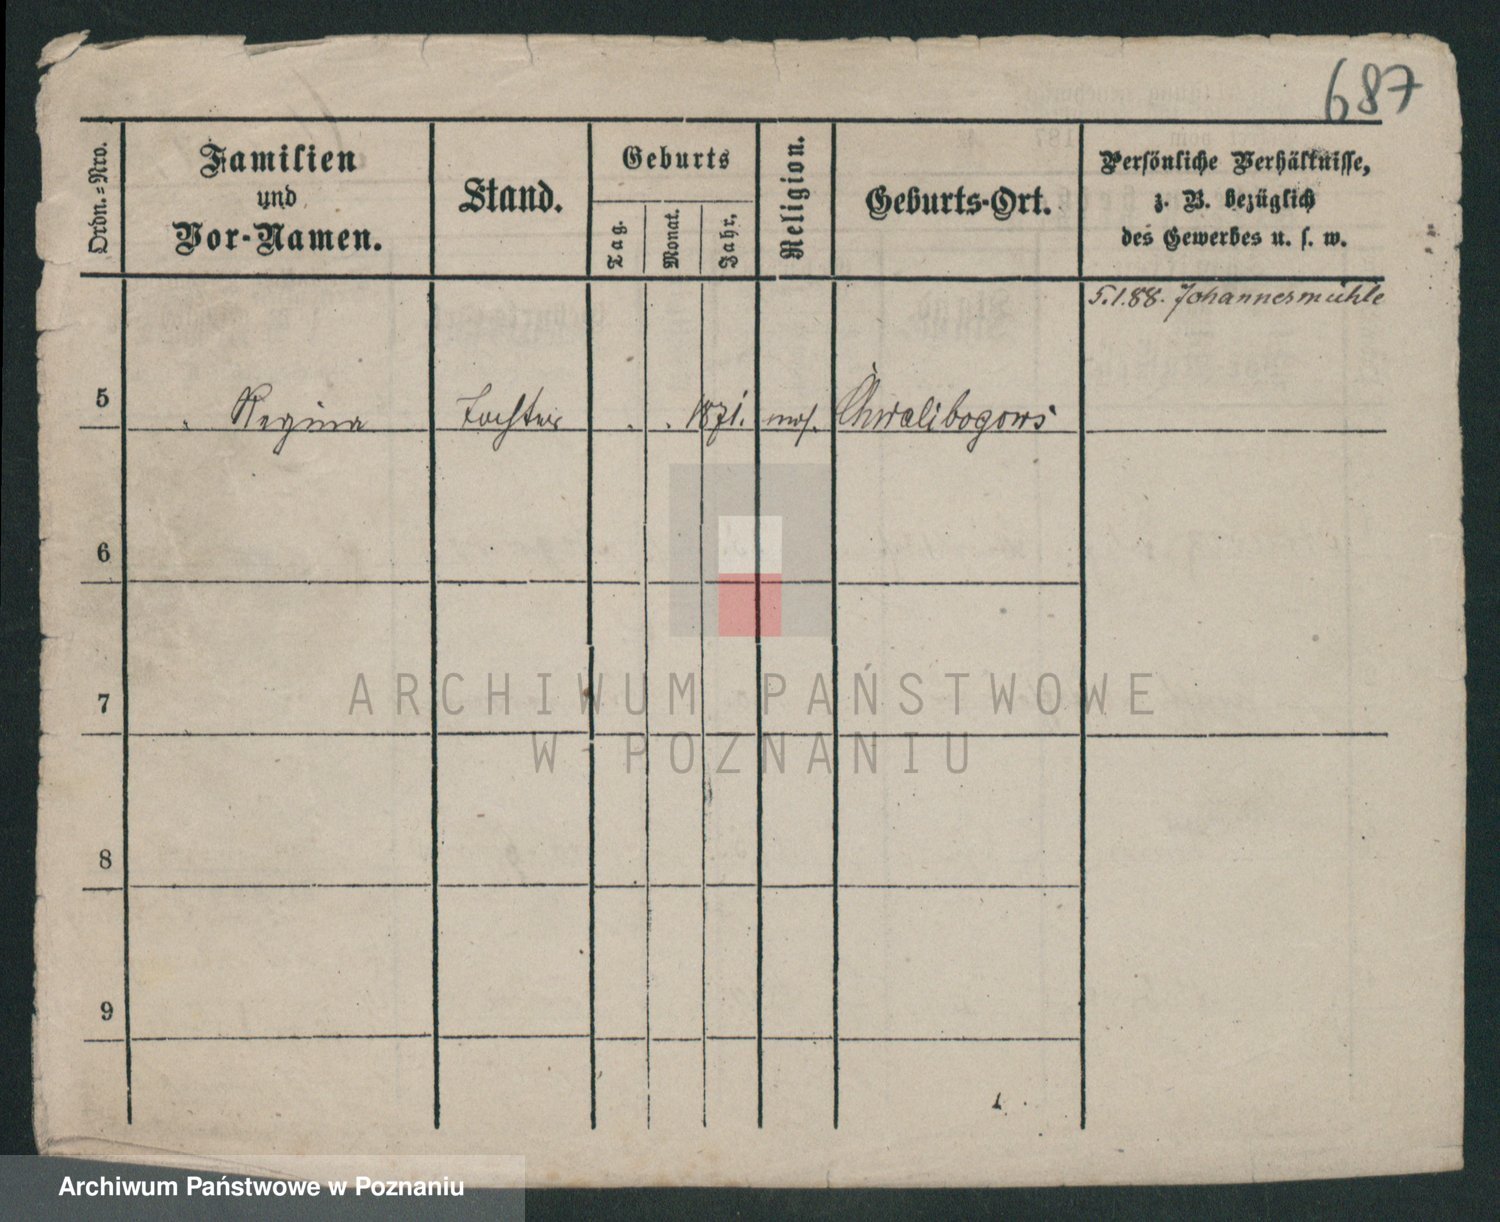 687
Ordn.=Nro.
Familien
und
Vor-Namen.
Stand.
Geburts
Tag.
Monat.
Jahr.
Religion.
Geburts-Ort.
Persönliche Verhältnisse,
z. B. bezüglich
des Gewerbes u. s. w.
5.1.88. Johannesmühle
5 Regina Tochter 1871. mos. Chwalibogowo
6
7
8
9
ARCHIWUM PAŃSTWOWE
W POZNANIU
Archiwum Państwowe w Poznaniu